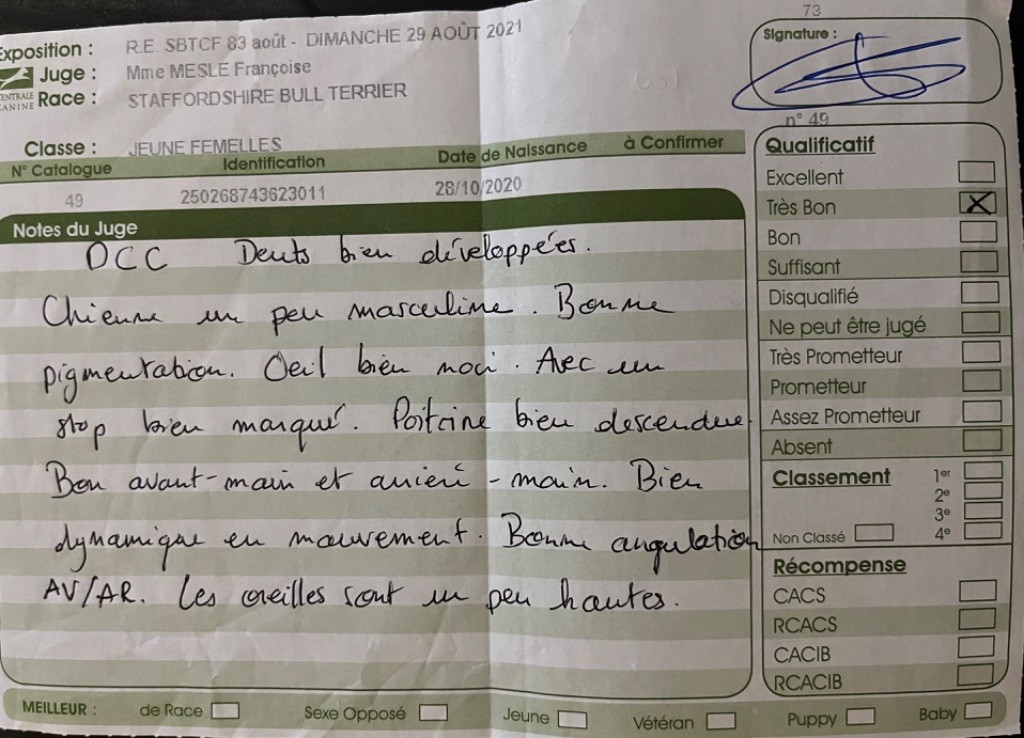 73
Exposition : R.E. SBTCF 83 août - DIMANCHE 29 AOÛT 2021
Signature :
Juge : Mme MESLE Françoise
CENTRALE CANINE
Race : STAFFORDSHIRE BULL TERRIER
n° 49
Classe : JEUNE FEMELLES
N° Catalogue Identification Date de Naissance à Confirmer
49 250268743623011 28/10/2020
Notes du Juge
DCC Dents bien développées.
Chienne un peu masculine. Bonne
pigmentation. Oeil bien noir. Avec un
stop bien marqué. Poitrine bien descendue.
Bon avant-main et arrière-main. Bien
dynamique en mouvement. Bonne angulation
AV/AR. Les oreilles sont un peu hautes.
Qualificatif
Excellent
Très Bon X
Bon
Suffisant
Disqualifié
Ne peut être jugé
Très Prometteur
Prometteur
Assez Prometteur
Absent
Classement 1er
2e
3e
Non Classé 4e
Récompense
CACS
RCACS
CACIB
RCACIB
MEILLEUR : de Race Sexe Opposé Jeune Vétéran Puppy Baby